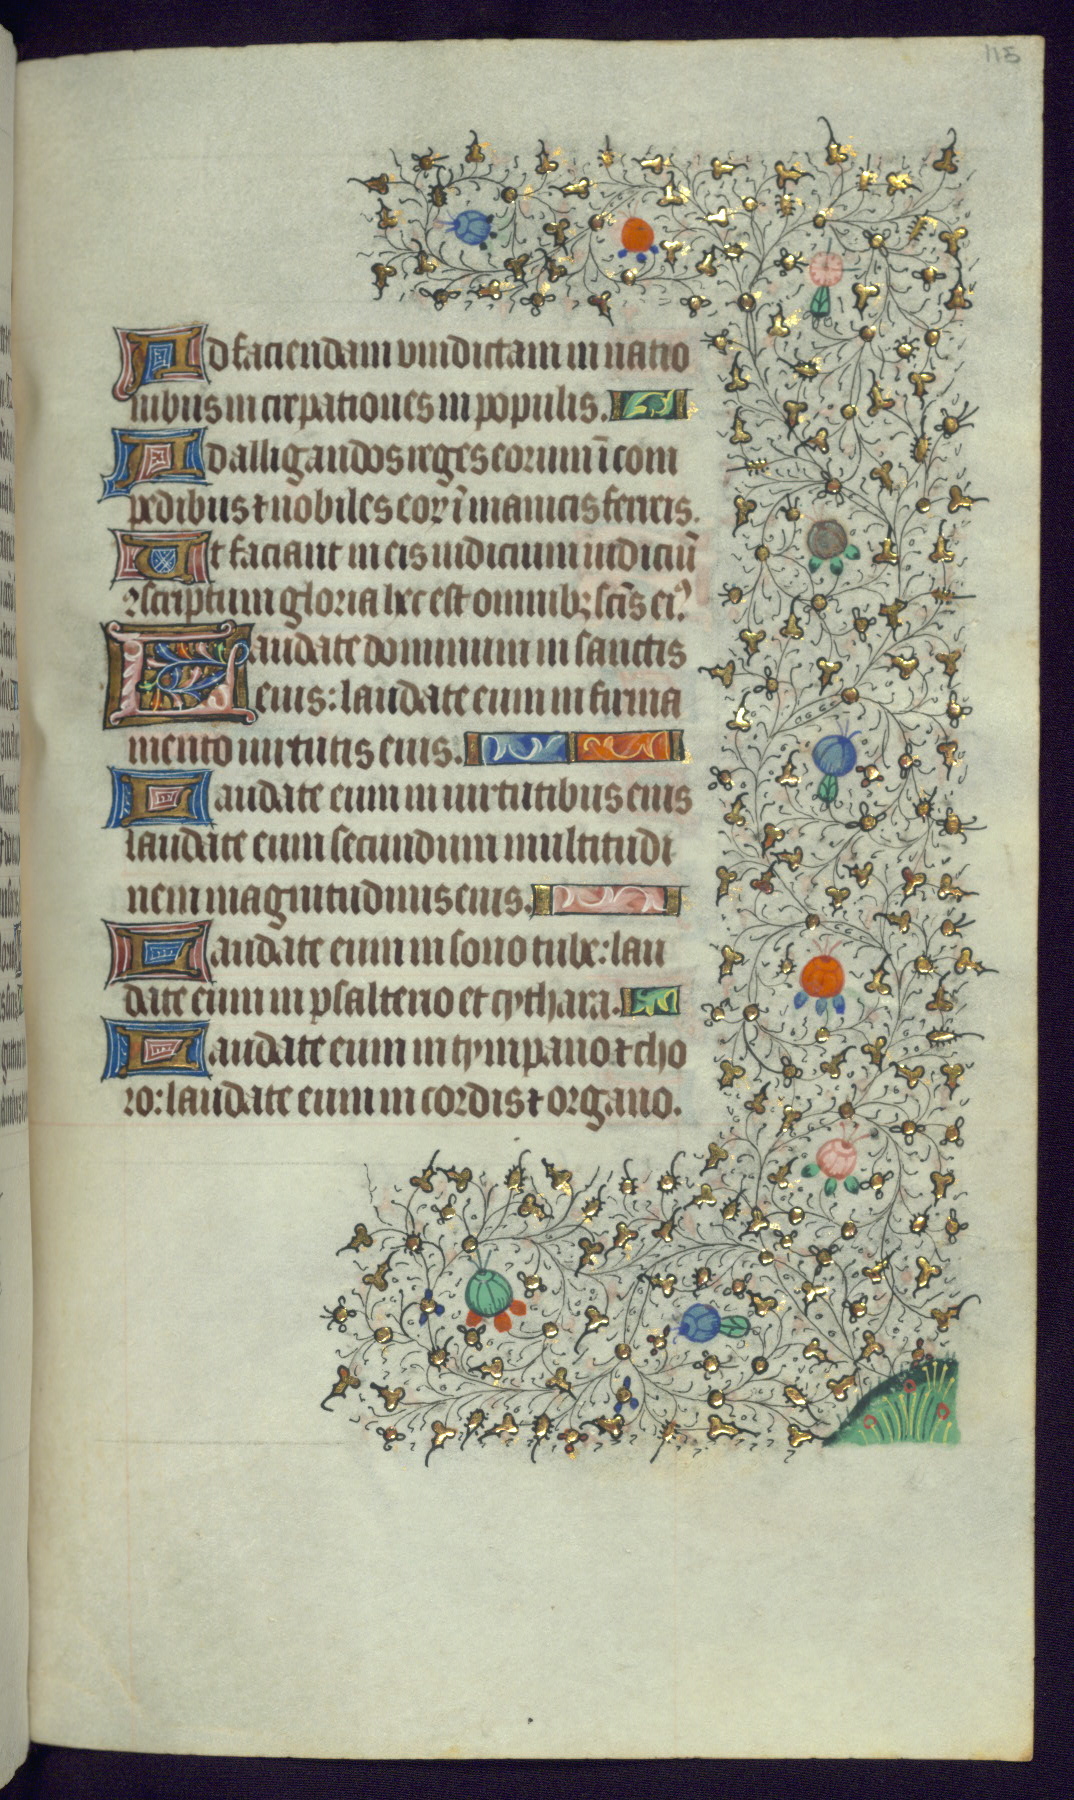 115
Ad faciendam vindictam in natio
nibus increpationes in populis.
Ad alligandos reges eorum ī com
pedibus ⁊ nobiles eoꝝ ī manicis ferreis.
Ut faciant in eis iudicium iudiciū
ꝯscriptum gloria hec est omnibꝫ scīs ei⁹
Laudate dominum in sanctis
eius: laudate eum in firma
mento uirtutis eius.
Laudate eum in uirtutibus eius
laudate eum secundum multitudi
nem magnitudinis eius.
Laudate eum in sono tube: lau
date eum in psalterio et cythara.
Laudate eum in tympano ⁊ cho
ro: laudate eum in cordis ⁊ organo.